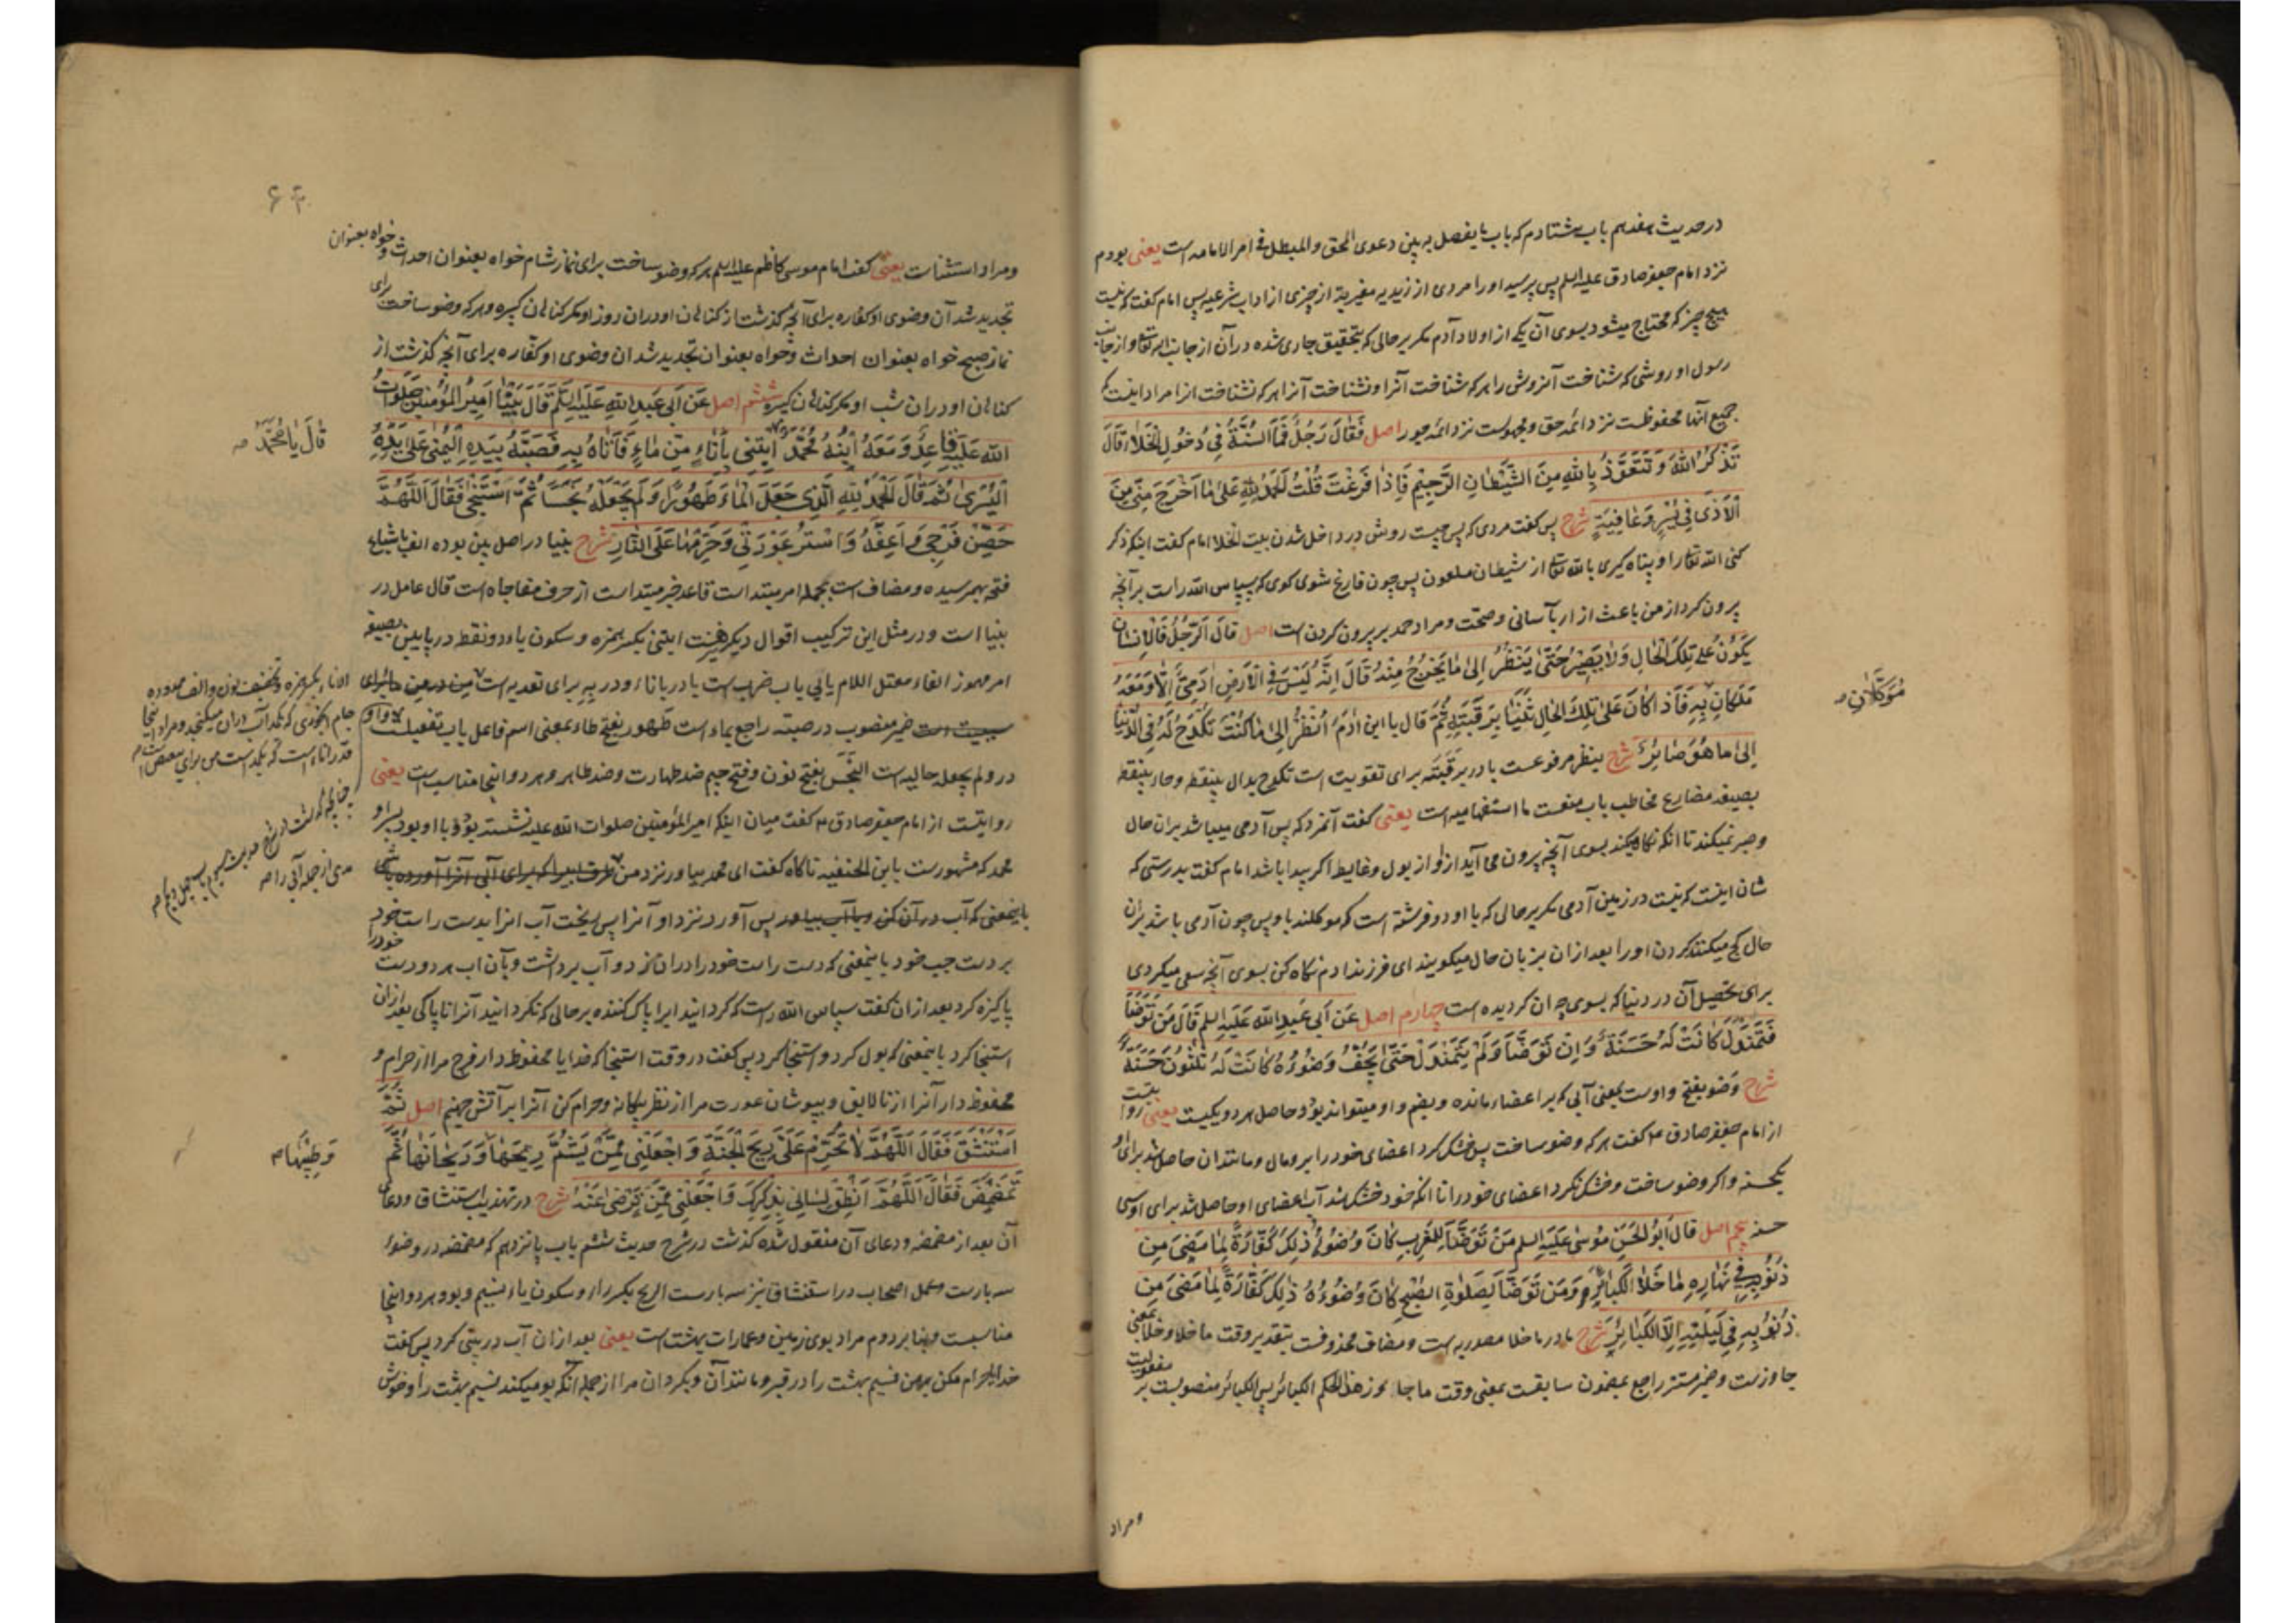 در حدیث هفدهم باب هشتادم که باب ما یفصل به بین دعوی المحق والمبطل فی امر الامامه است یعنی بودم
نزد امام جعفر صادق علیه السلم پس پرسید او را مردی از زیدیه مغیریه از چیزی از اداب شرعیه پس امام کفت که نیست
هیچ چیز که محتاج میشود بسوی آن یکی از اولاد آدم مکر بر حالی که بتحقیق جاری شده در آن از جانب الله تعالی و از جانب
رسول او روشی که شناخت آنروش را هر که شناخت آنرا و نشناخت آنرا هر که نشناخت انرا مراد اینست که
جمیع آنها محفوظست نزد ائمه حق و مجهولست نزد ائمه جور اصل فَقَالَ رَجُلٌ فَمَا السُّنَّةُ فِي دُخُولِ الْخَلَاءِ قَالَ
تَذْكُرُ اللَّهَ وَتَتَعَوَّذُ بِاللَّهِ مِنَ الشَّيْطَانِ الرَّجِيمِ فَإِذَا فَرَغْتَ قُلْتَ الْحَمْدُ لِلَّهِ عَلَىٰ مَا أَخْرَجَ مِنِّي مِنَ
الْأَذَىٰ فِي يُسْرٍ وَعَافِيَةٍ شرح پس کفت مردی که پس چیست روش در داخل شدن بیت الخلا امام کفت اینکه ذکر
کنی الله تعالی را و پناه کیری بالله تعالی از شیطان ملعون پس چون فارغ شوی کوی که سپاس الله راست بر آنچه
برون کرد از من باعث ازار بآسانی و صحت و مراد حمد بر برون کردن است اصل قَالَ الرَّجُلُ فَالْإِنْسَانُ
يَكُونُ عَلَىٰ تِلْكَ الْحَالِ وَلَا يَصْبِرُ حَتَّىٰ يَنْظُرَ إِلَىٰ مَا يَخْرُجُ مِنْهُ قَالَ إِنَّهُ لَيْسَ فِي الْأَرْضِ آدَمِيٌّ إِلَّا وَمَعَهُ
مُوَكَّلَانِ صح
مَلَكَانِ بِهِ فَإِذَا كَانَ عَلَىٰ تِلْكَ الْحَالِ ثَنَيَا بِرَقَبَتِهِ ثُمَّ قَالَا يَا ابْنَ آدَمَ انْظُرْ إِلَىٰ مَا كُنْتَ تَكْدَحُ لَهُ فِي الدُّنْيَا
إِلَىٰ مَا هُوَ صَائِرٌ شرح ینظر مرفوعست با در برقبته برای تقویت است تکدح بدال بینقطه و حاء بینقطه
بصیغه مضارع مخاطب باب منعست ما استفهامیه است یعنی کفت آنمرد که پس آدمی میباشد بران حال
و صبر نمیکند تا انکه نکاه میکند بسوی آنچه برون می آید از او از بول و غایط اکر بیدا باشد امام کفت بدرستی که
شان اینست که نیست در زمین آدمی مکر بر حالی که با او دو فرشته است که موکلند باو پس چون آدمی باشد بران
حال کج میکنند کردن او را بعد ازان بزبان حال میکویند ای فرزند ادم نکاه کن بسوی آنچه سعی میکردی
برای تحصیل آن در دنیا که بسوی چه ان کردیده است چهارم اصل عَنْ أَبِي عَبْدِ اللَّهِ عَلَيْهِ السلم قَالَ مَنْ تَوَضَّأَ
فَتَمَنْدَلَ كَانَتْ لَهُ حَسَنَةٌ وَإِنْ تَوَضَّأَ وَلَمْ يَتَمَنْدَلْ حَتَّىٰ يَجِفَّ وَضُوءُهُ كَانَتْ لَهُ ثَلَٰثُونَ حَسَنَةً
شرح وَضو بفتح واوست بمعنی آبی که بر اعضاء مانده و بضم واو میتواند بود و حاصل هر دو یکیست یعنی روایتست
از امام جعفر صادق ع کفت هر که وضو ساخت پس خشک کرد اعضای خود را برومال و مانندان حاصل شد برای او
یکحسنه و اکر وضو ساخت و خشک نکرد اعضای خود را تا انکه خود خشک شد آب اعضای او حاصل شد برای او سی
حسنه پنجم اصل قَالَ أَبُو الْحَسَنِ مُوسَىٰ عَلَيْهِ السلم مَنْ تَوَضَّأَ لِلْمَغْرِبِ كَانَ وُضُوءُهُ ذَٰلِكَ كَفَّارَةً لِمَا مَضَىٰ مِنْ
ذُنُوبِهِ فِي نَهَارِهِ مَا خَلَا الْكَبَائِرَ وَمَنْ تَوَضَّأَ لِصَلَوٰةِ الصُّبْحِ كَانَ وُضُوءُهُ ذَٰلِكَ كَفَّارَةً لِمَا مَضَىٰ مِنْ
ذُنُوبِهِ فِي لَيْلَتِهِ إِلَّا الْكَبَائِرَ شرح ما در ما خلا مصدریه است و مضاف محذوفست بتقدیر وقت ما خلا و خلا بمعنی
جاوزست و ضمیر مستتر راجع بمضمون سابقست بمعنی وقت ما جاوز هذا الحکم الکبائر پس الکبائر منصوبست بر مفعولیت
و مراد
۶۴
و مراد استثناست یعنی کفت امام موسی کاظم علیه السلم هر که وضو ساخت برای نماز شام خواه بعنوان احداث و خواه بعنوان
تجدید شد آن وضوی او کفاره برای آنچه کذشت از کناهان او دران روز او مکر کناهان کبیره و هر که وضو ساخت برای
نماز صبح خواه بعنوان احداث و خواه بعنوان تجدید شد ان وضوی او کفاره برای آنچه کذشت از
کناهان او دران شب او مکر کناهان کبیره ششم اصل عَنْ أَبِي عَبْدِ اللَّهِ عَلَيْهِ السلم قَالَ بَيْنَا أَمِيرُ الْمُؤْمِنِينَ صَلَوَاتُ
اللَّهِ عَلَيْهِ قَاعِدٌ وَمَعَهُ ابْنُهُ مُحَمَّدٌ ايتِنِي بِإِنَاءٍ مِنْ مَاءٍ فَأَتَاهُ بِهِ فَصَبَّهُ بِيَدِهِ الْيُمْنَىٰ عَلَىٰ يَدِهِ
قَالَ يَا مُحَمَّدُ صح
الْيُسْرَىٰ ثُمَّ قَالَ الْحَمْدُ لِلَّهِ الَّذِي جَعَلَ الْمَاءَ طَهُورًا وَلَمْ يَجْعَلْهُ نَجَسًا ثُمَّ اسْتَنْجَىٰ فَقَالَ اللَّهُمَّ
حَصِّنْ فَرْجِي وَأَعِفَّهُ وَاسْتُرْ عَوْرَتِي وَحَرِّمْهَا عَلَى النَّارِ شرح بینا در اصل بین بوده الف باشباع
فتحه بهمرسیده و مضاف است بجمله امر مبتداست قاعد خبر مبتداست از حرف مفاجاه است قال عامل در
بینا است و در مثل این ترکیب اقوال دیکر هست ایتنی بکسر همزه و سکون یاء دو نقطه در پایین بصیغه
امر مهموز الفاء معتل اللام یایی باب ضرب است با در باناء و در به برای تعدیه است
ضمیر منصوب در صبته راجع بماء است طهور بفتح طاء بمعنی اسم فاعل باب تفعیلست واو
در ولم یجعله حالیه است النجس بفتح نون و فتح جیم ضد طهارت و ضد طاهر و هر دو اینجا مناسب است یعنی
روایتست از امام جعفر صادق ع کفت میان اینکه امیر المؤمنین صلوات الله علیه نشسته بود و با او بود پسر او
محمد که مشهورست بابن الحنفیه ناکاه کفت ای محمد بیاور نزد من
باینمعنی که آب در آن کن پس آورد نزد او آنرا پس ریخت آب انرا بدست راست خود
بر دست چپ خود باینمعنی که دست راست خود را دران کرد و آب برداشت و بآن اب هر دو دست خود را
پاکیزه کرد بعد ازان کفت سپاس الله راست که کردانید ابرا پاک کننده بر حالی که نکردانید آنرا ناپاکی بعد ازان
استنجا کرد باینمعنی که بول کرد و استنجا کرد پس کفت در وقت استنجا که خدایا محفوظ دار فرج مرا از حرام و
محفوظ دار آنرا از نالایق و بپوشان عورت مرا از نظر بیکانه و حرام کن آنرا بر آتش جهنم اصل ثُمَّ
اسْتَنْشَقَ فَقَالَ اللَّهُمَّ لَا تُحَرِّمْ عَلَيَّ رِيحَ الْجَنَّةِ وَاجْعَلْنِي مِمَّنْ يَشَمُّ رِيحَهَا وَرَيْحَانَهَا ثُمَّ
وَطِيبَهَا صح
تَمَضْمَضَ فَقَالَ اللَّهُمَّ أَنْطِقْ لِسَانِي بِذِكْرِكَ وَاجْعَلْنِي مِمَّنْ تَرْضَىٰ عَنْهُ شرح در تهذیب استنشاق و دعای
آن بعد از مضمضه و دعای آن منقول شده کذشت در شرح حدیث ششم باب پانزدهم که مضمضه در وضوء
سه بارست و عمل اصحاب در استنشاق نیز سه بارست الریح بکسر راء و سکون یاء نسیم و بو و هر دو اینجا
مناسبست و بنا بر دوم مراد بوی زمین و عمارات بهشت است یعنی بعد ازان آب در بینی کرد پس کفت
خدایا حرام مکن بر من نسیم بهشت را در قبر و مانند آن و بکردان مرا از جمله آنکه بو میکند نسیم بهشت را و خوش
الاناء بکسر همزه و تخفیف نون و الف ممدوده